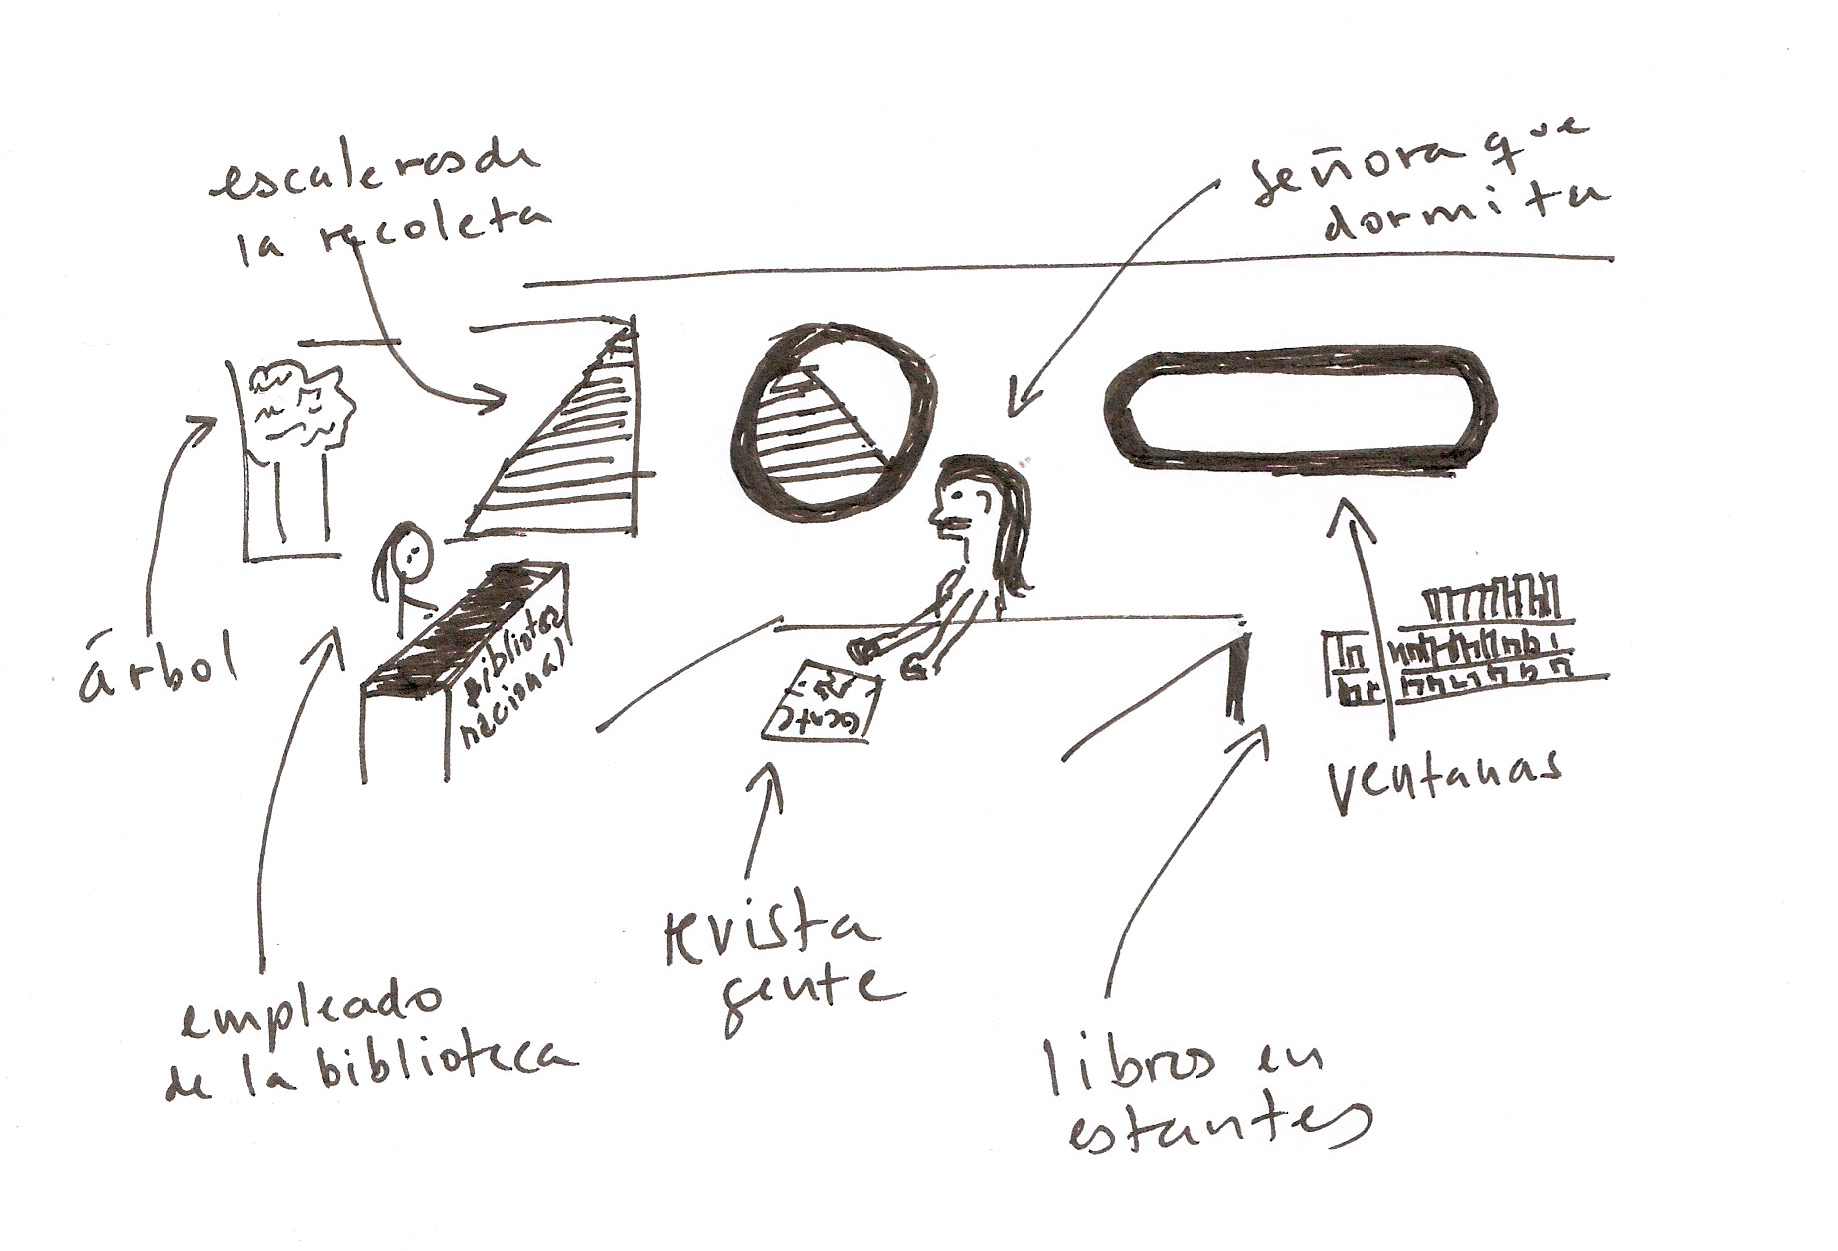 escaleras de
la recoleta
señora que
dormita
árbol
biblioteca
nacional
Gente
ventanas
revista
gente
empleado
de la biblioteca
libros en
estantes